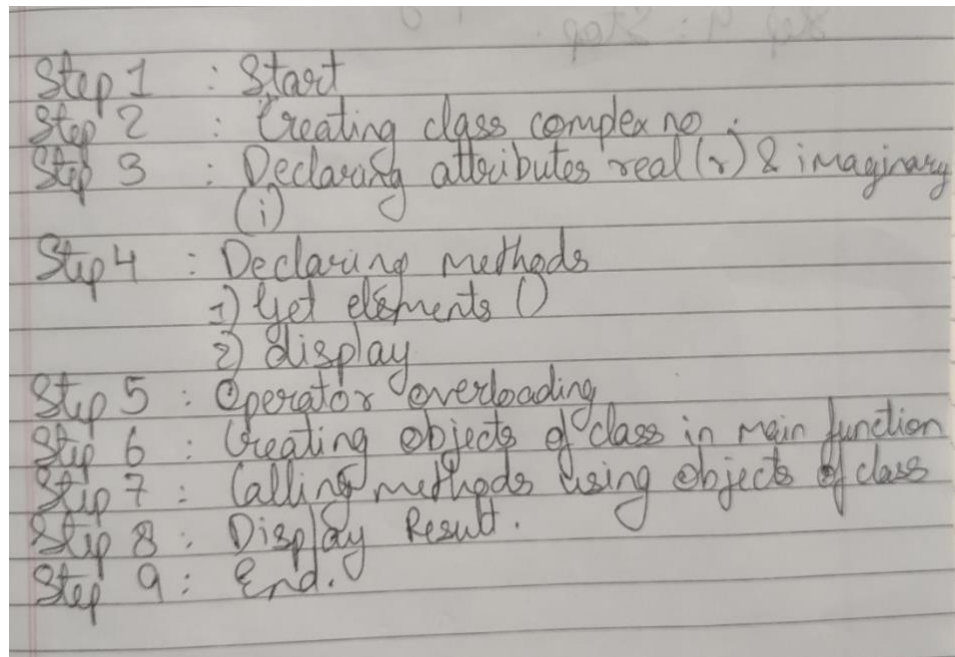 Step 1 : Start
Step 2 : Creating class complex no.
Step 3 : Declaring attributes real (r) & imaginary
(i)
Step 4 : Declaring methods
1) Get elements ()
2) display
Step 5 : Operator overloading
Step 6 : Creating objects of class in main function
Step 7 : Calling methods using objects of class
Step 8 : Display Result.
Step 9 : End.